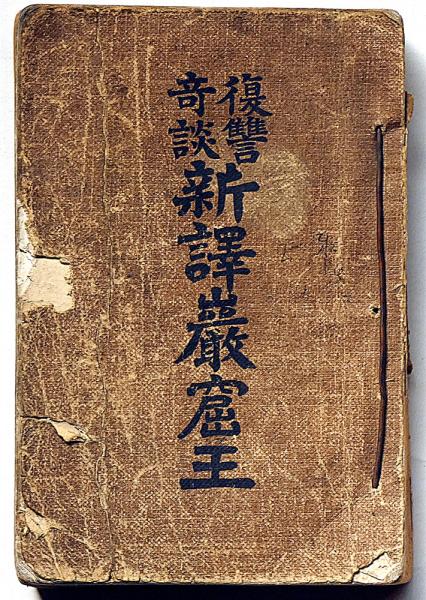 復讐
奇談
新譯巖窟王